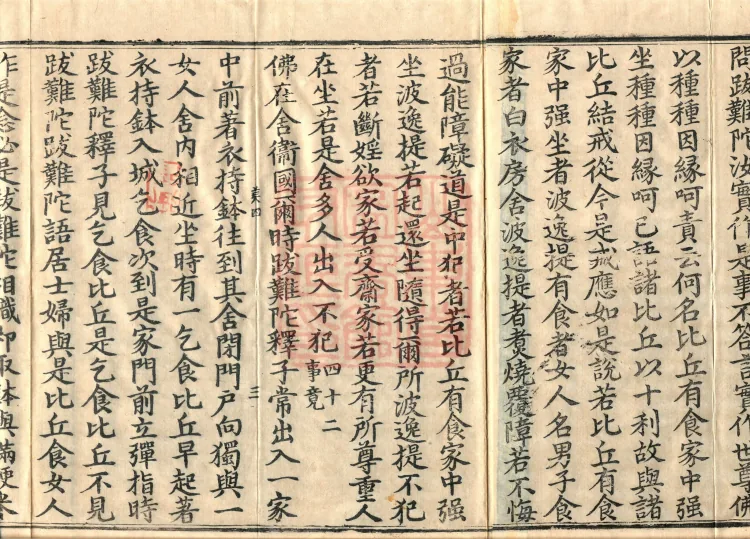 問跋難陀汝實作是事不答言實作世尊佛
以種種因緣呵責云何名比丘有食家中强
坐種種因緣呵已語諸比丘以十利故與諸
比丘結戒從今是戒應如是說若比丘有食
家中强坐者波逸提有食者女人名男子食
家者白衣房舍波逸提者煑燒覆障若不悔
過能障礙道是中犯者若比丘有食家中强
坐波逸提若起還坐隨得爾所波逸提不犯
者若斷婬欲家若受齋家若更有所尊重人
在坐若是舍多人出入不犯 四十二事竟
佛在舍衛國爾時跋難陀釋子常出入一家
四 三
中前著衣持鉢往到其舍閇門戶向獨與一
女人舍內相近坐時有一乞食比丘早起著
衣持鉢入城乞食次到是家門前立彈指時
跋難陀釋子見乞食比丘是乞食比丘不見
跋難陀跋難陀語居士婦與是比丘食女人
作是念必是跋難陀相識卽取鉢與滿粳